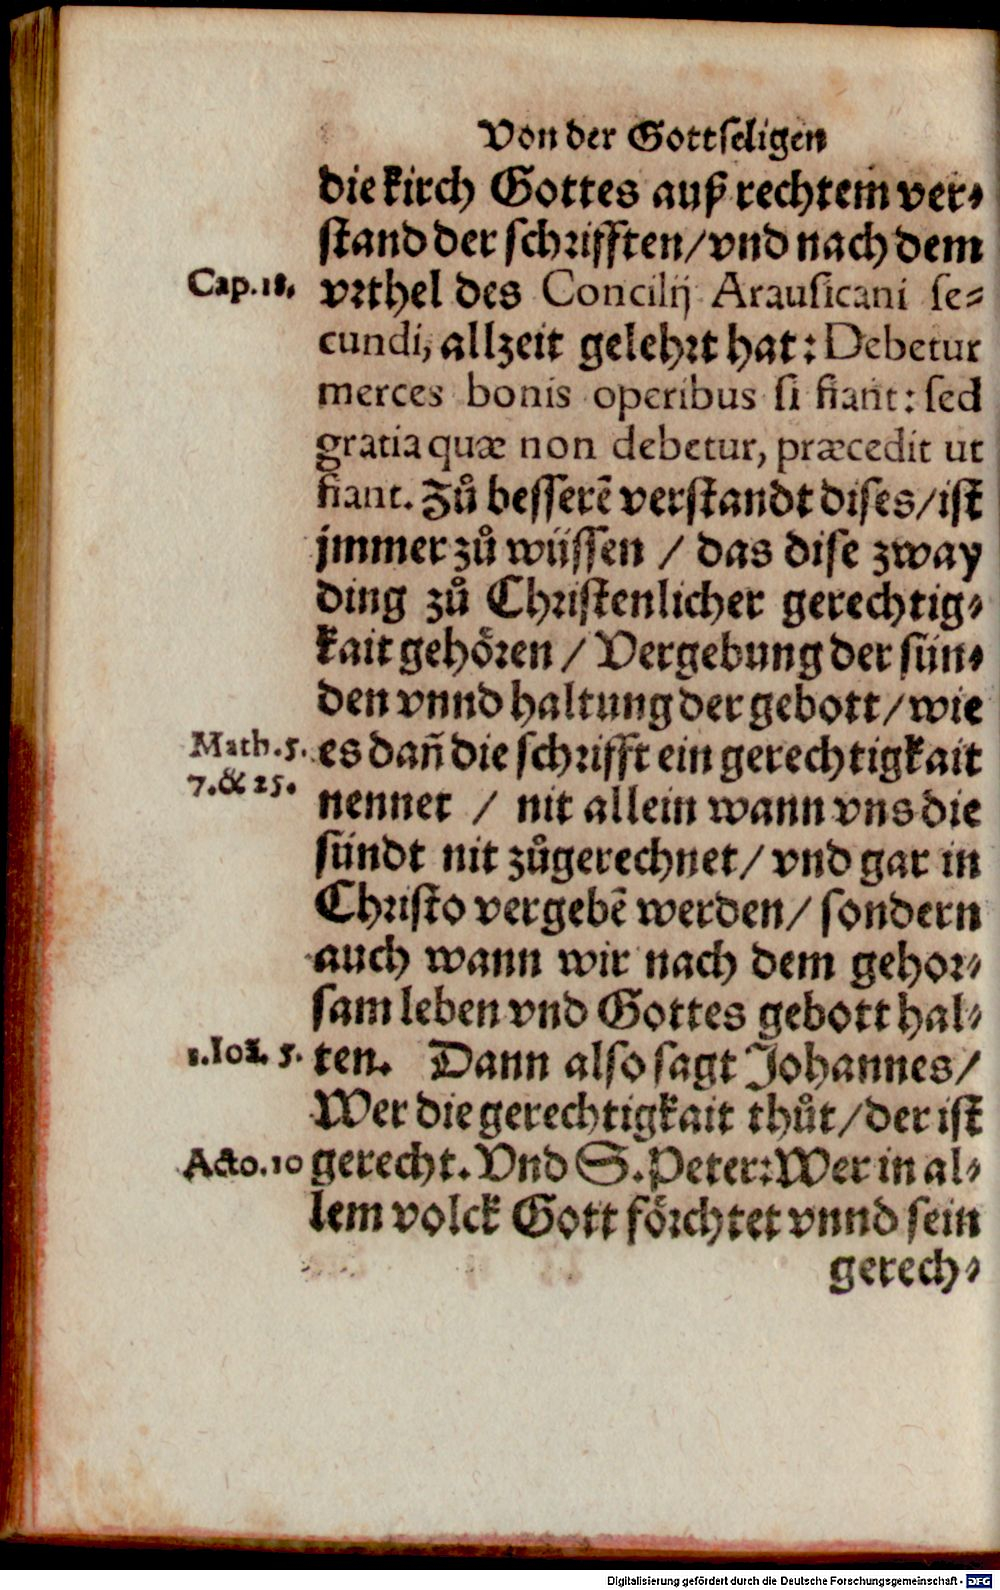 Von der Gottseligen
die kirch Gottes auß rechtem ver-
stand der schrifften/vnd nach dem
Cap.18. vrthel des Concilij Arausicani se-
cundi, allzeit gelehrt hat: Debetur
merces bonis operibus si fiant: sed
gratia quæ non debetur, præcedit ut
fiant. Zů besserẽ verstandt dises/ist
jmmer zů wüssen / das dise zway
ding zů Christenlicher gerechtig-
kait gehören / Vergebung der sün-
den vnnd haltung der gebott/wie
Math.5. es dañ die schrifft ein gerechtigkait
7.&25. nennet / nit allein wann vns die
sündt nit zůgerechnet/ vnd gar in
Christo vergebẽ werden/ sondern
auch wann wir nach dem gehor-
sam leben vnd Gottes gebott hal-
1.Ioã. 5. ten. Dann also sagt Johannes/
Wer die gerechtigkait thůt/der ist
Acto.10 gerecht. Vnd S. Peter: Wer in al-
lem volck Gott förchtet vnnd sein
gerech-
Digitalisierung gefördert durch die Deutsche Forschungsgemeinschaft - DFG